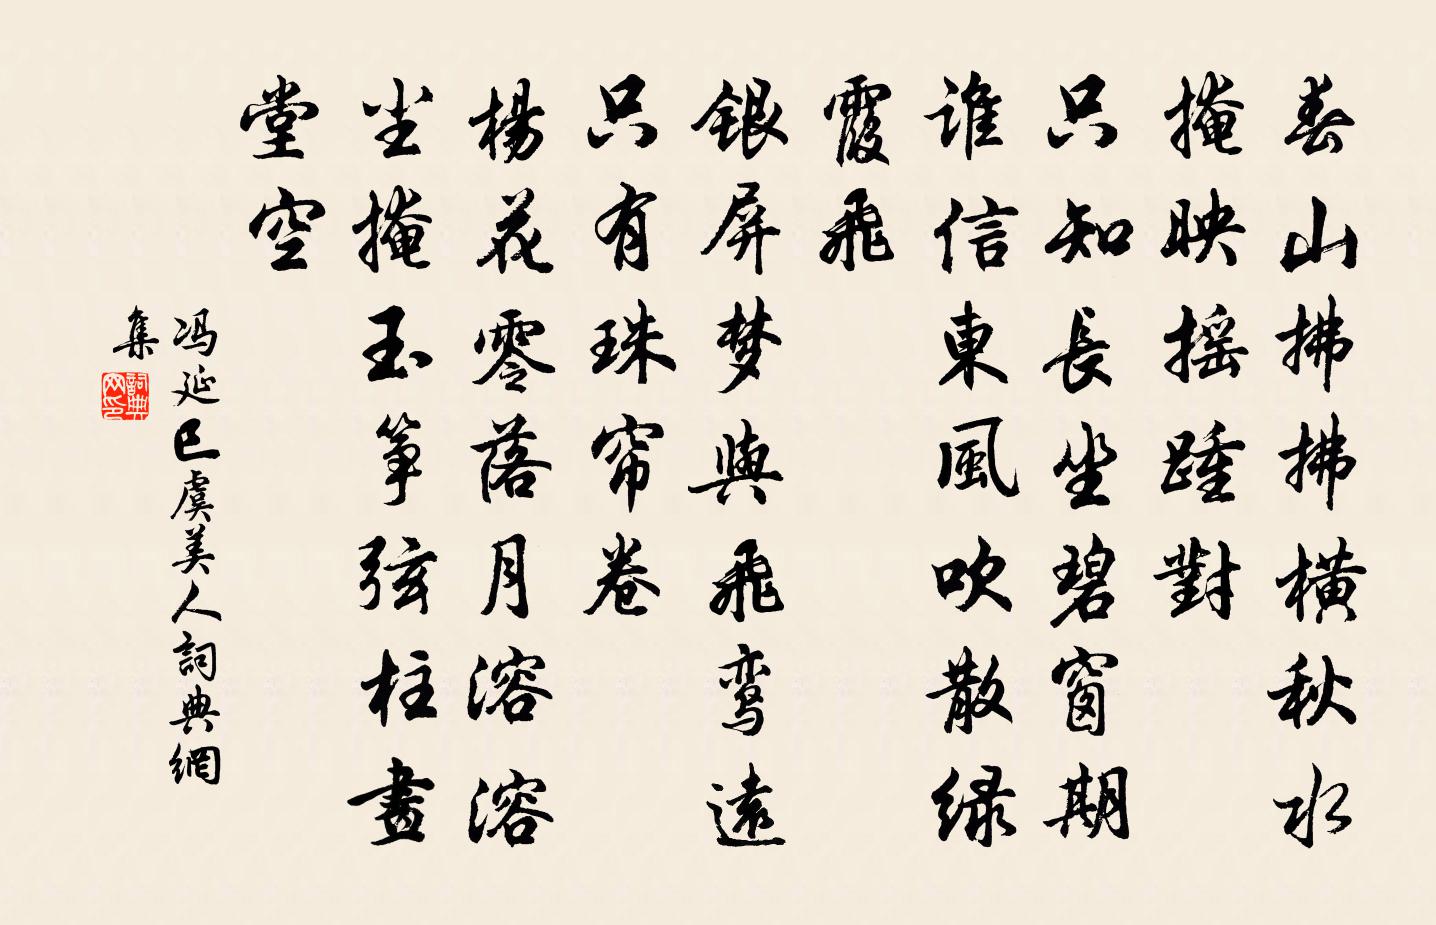 春山拂拂橫秋水
掩映摇踵對
只知長坐碧窗期
谁信東風吹散绿
霞飛
银屏梦與飛鸾遠
只有珠帘卷
楊花零落月溶溶
尘掩玉筝弦柱畫
堂空
冯延巳虞美人詞典網
集
詞典
网印